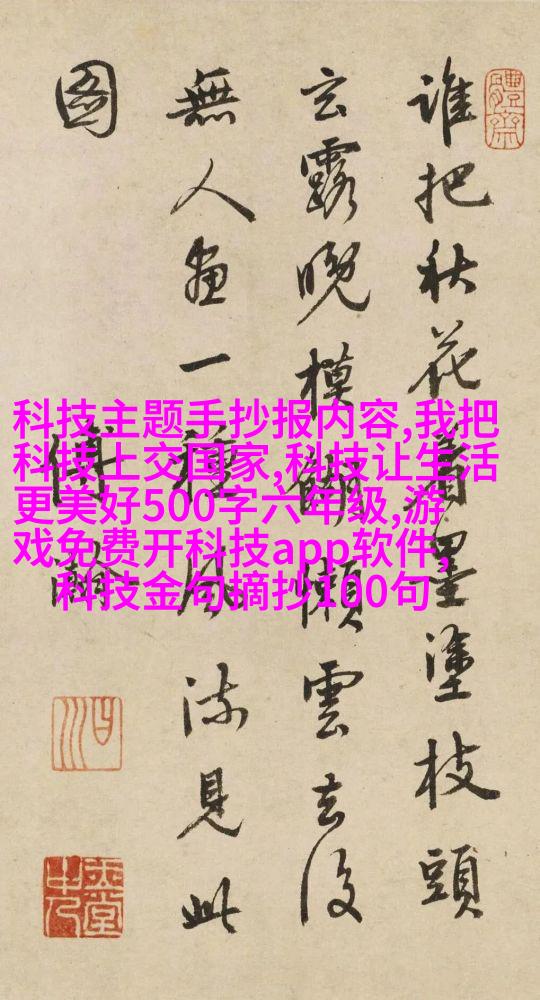 誰把秋花着墨塗枝頭
玄露晚模餬懶雲去後
無人畫一種風流見此
圖
傅瀚
體齋
科技主题手抄报内容,我把
科技上交国家,科技让生活
更美好500字六年级,游
戏免费开科技app软件,
科技金句摘抄100句